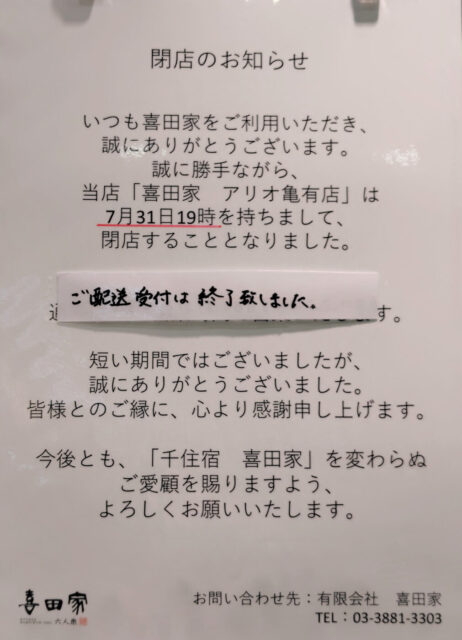 閉店のお知らせ
いつも喜田家をご利用いただき、
誠にありがとうございます。
誠に勝手ながら、
当店「喜田家　アリオ亀有店」は
7月31日19時を持ちまして、
閉店することとなりました。
ご配送受付は終了致しました。
す。
短い期間ではございましたが、
誠にありがとうございました。
皆様とのご縁に、心より感謝申し上げます。
今後とも、「千住宿　喜田家」を変わらぬ
ご愛顧を賜りますよう、
よろしくお願いいたします。
喜田家
六人衆
お問い合わせ先：有限会社　喜田家
TEL：03-3881-3303